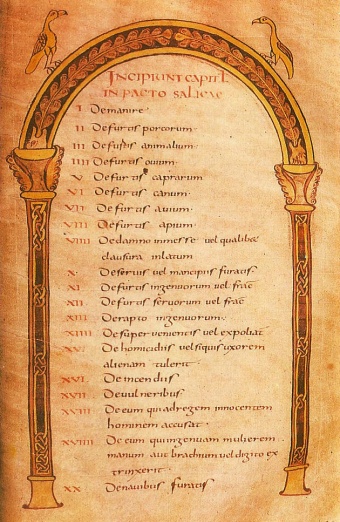 INCIPIUNT CAPITL
IN PACTO SALICAE
I De manire
II De furtis porcorum
III De furtis animalium
IIII De furtis ouium
V De furtis caprarum
VI De furtis canum
VII De furtis auium
VIII De furtis apium
VIIII De damno inmesse vel qualibec
clausura inlatum
X De seruis vel mancipiis furatis
XI De furtis ingenuorum vel frac
XII De furtis seruorum vel frac
XIII De rapto ingenuorum
XIIII De superuenientis vel expoliat
XV De homicidiis vel siquis uxorem
alienam tulerit
XVI De incendiis
XVII De vulneribus
XVIII De eum qui adregem innocentem
hominem accusat
XVIIII De eum qui ingenuam mulierem
manum aut brachium vel digito ex
trinxerit
XX De nauibus furatis